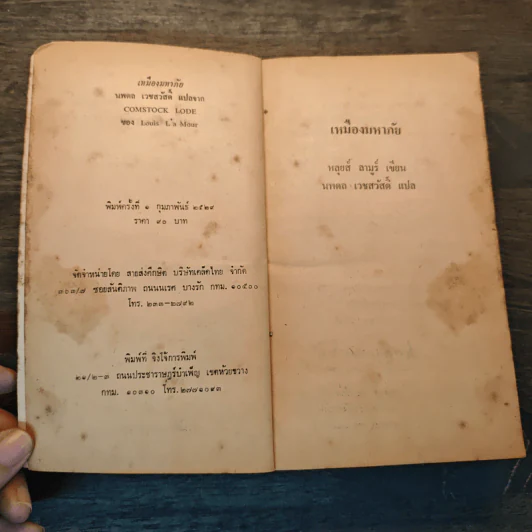 เหมืองมหาภัย
นพดล เวชสวัสดิ์ แปลจาก
COMSTOCK LODE
ของ Louis L'a Mour
พิมพ์ครั้งที่ ๑ กุมภาพันธ์ ๒๕๒๙
ราคา ๙๐ บาท
จัดจำหน่ายโดย สายส่งศึกษิต บริษัทเคล็ดไทย จำกัด
๓๐๓/๗ ซอยสันติภาพ ถนนนเรศ บางรัก กทม. ๑๐๕๐๐
โทร. ๒๓๓-๒๗๙๒
พิมพ์ที่ จิงโจ้การพิมพ์
๒๑/๒-๓ ถนนประชาราษฎร์บำเพ็ญ เขตห้วยขวาง
กทม. ๑๐๓๑๐ โทร. ๒๗๗๑๐๙๓
เหมืองมหาภัย
หลุยส์ ลามูร์ เขียน
นพดล เวชสวัสดิ์ แปล